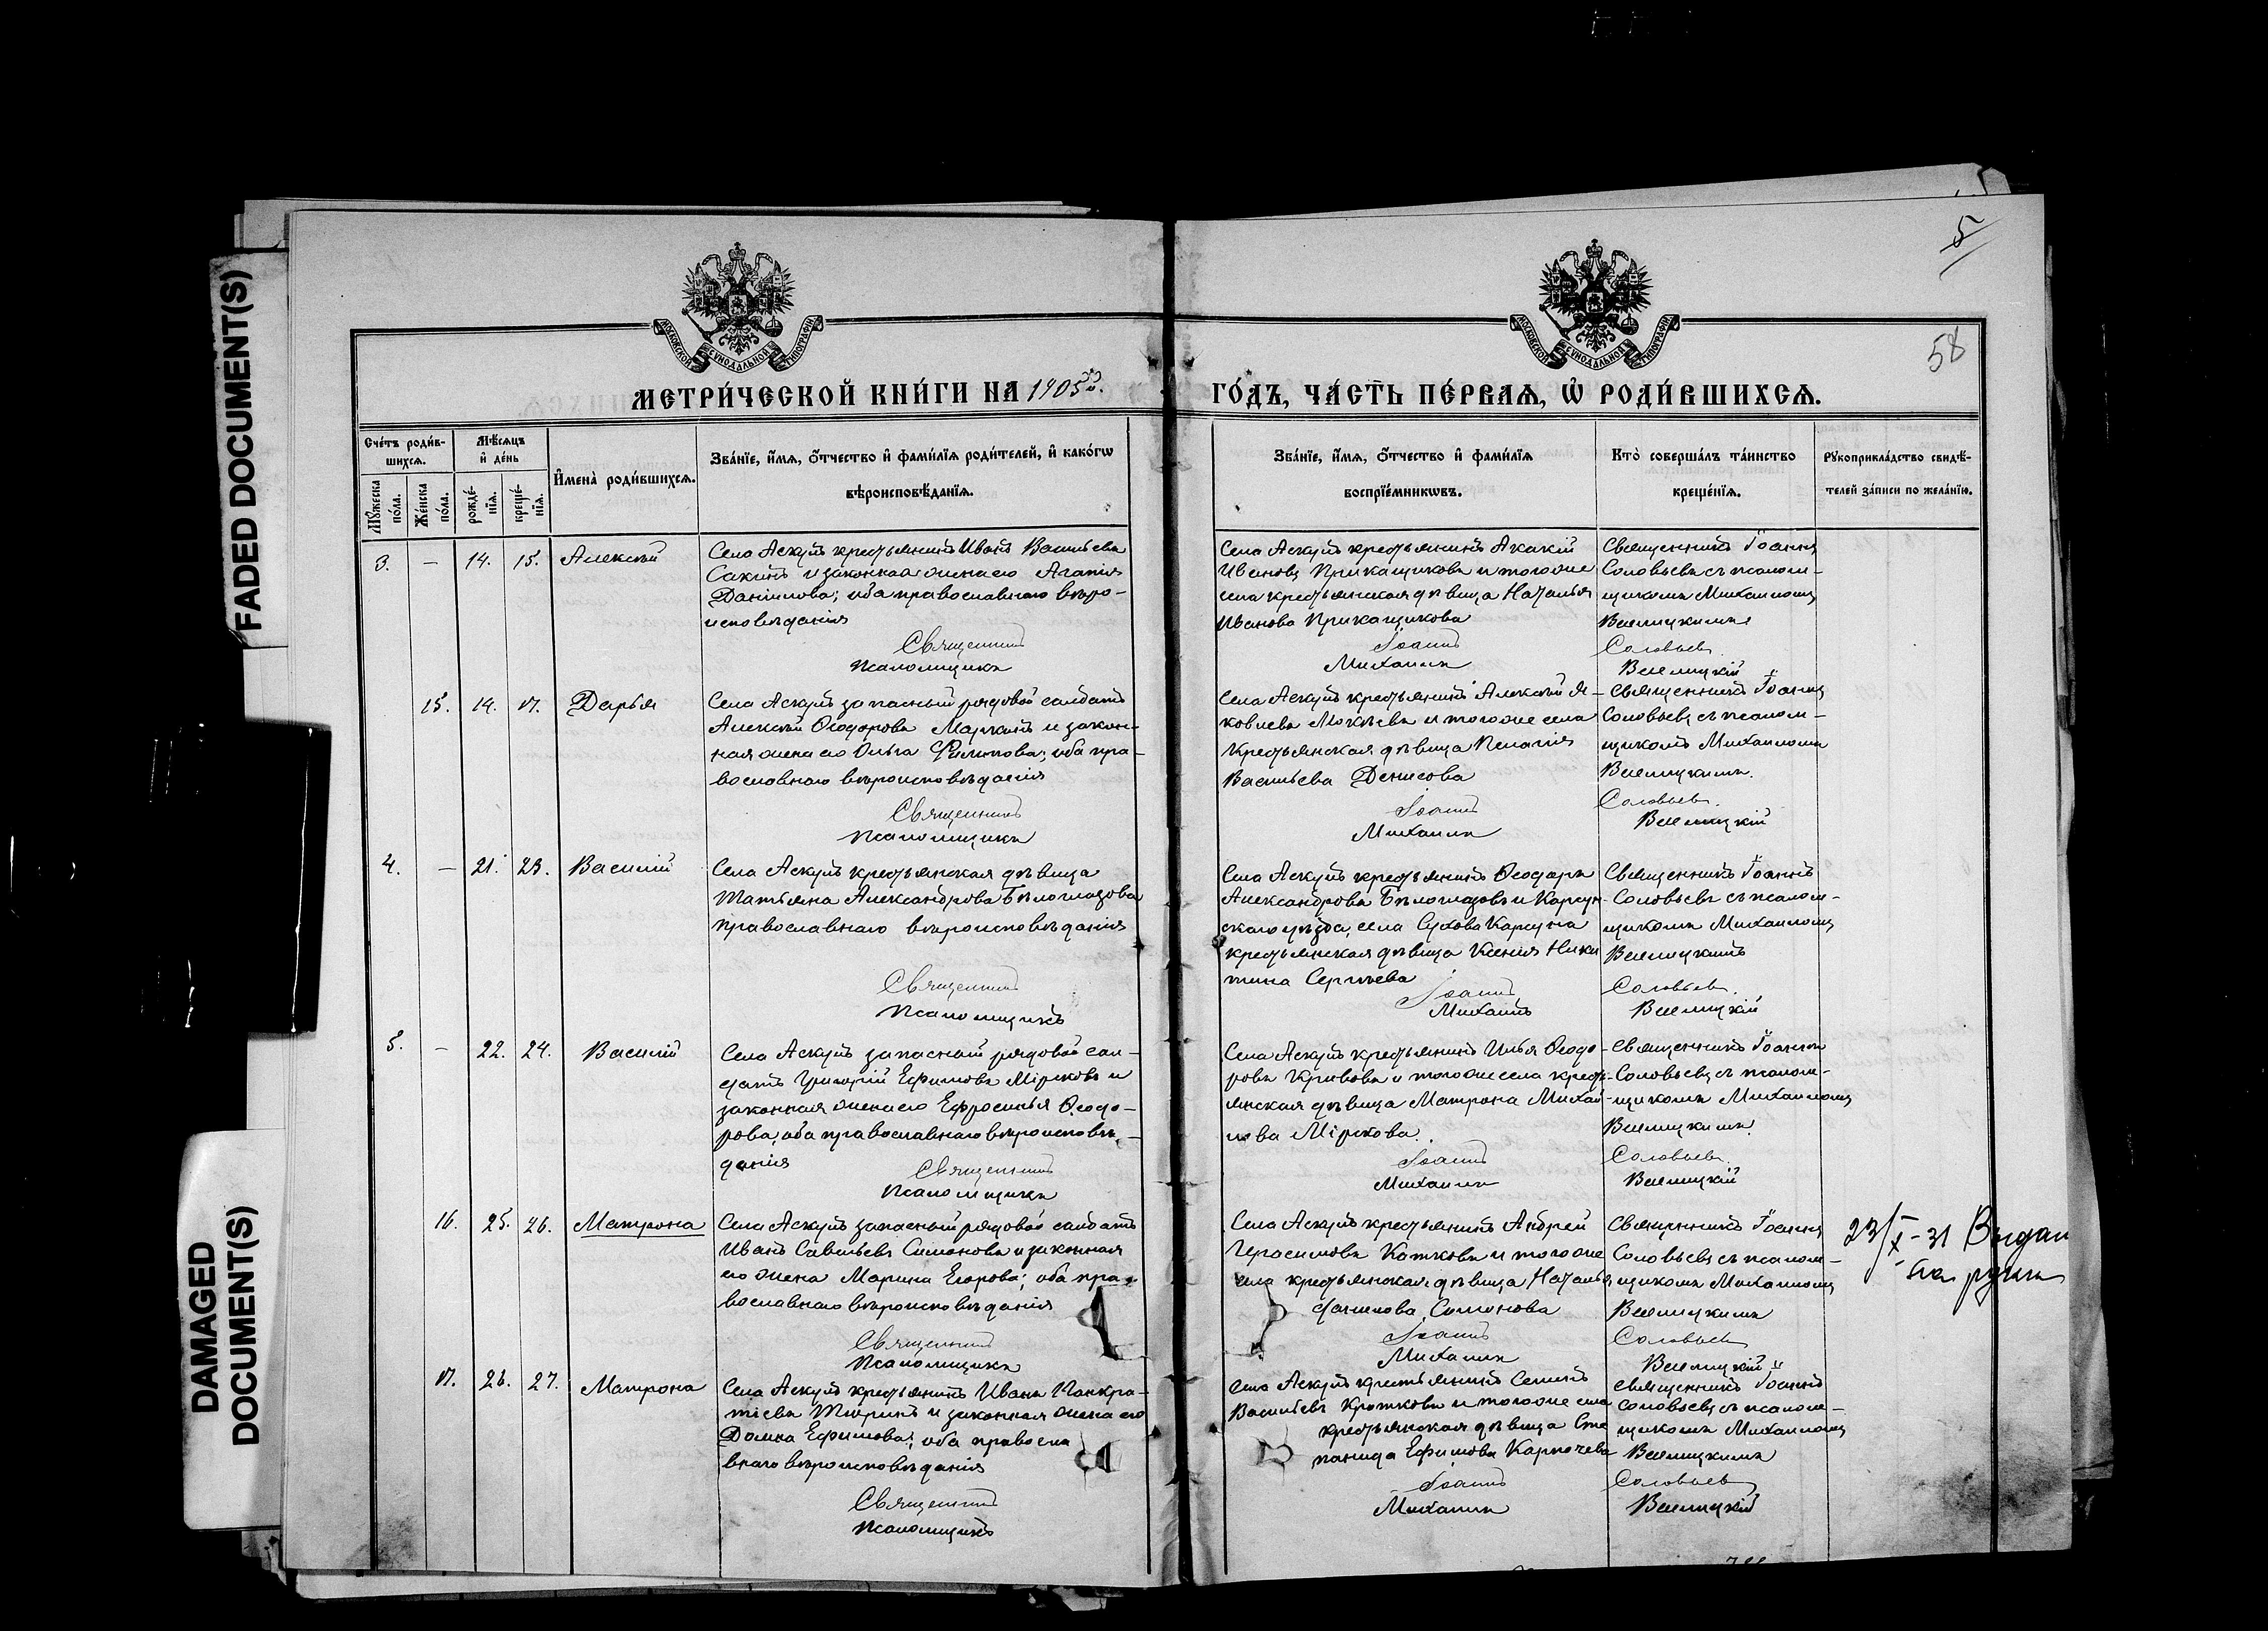 FADED DOCUMENT(S)
DAMAGED DOCUMENT(S)
5
58
МОСКОВСКОЙ СѴНОДАЛЬНОЙ ТИПОГРАФІИ
МОСКОВСКОЙ СѴНОДАЛЬНОЙ ТИПОГРАФІИ
МЕТРИ́ЧЕСКОЙ КНИ́ГИ НА 1905й
ГО́ДЪ, ЧА́СТЬ ПЕ́РВАѦ, Ѡ҆ РОДИ́ВШИХСѦ.
Сче́тъ роди́в-
шихсѧ.
Мꙋ́жеска по́ла.
Же́нска по́ла.
Мѣ́сѧцъ
и҆ де́нь
рожде́-
нїѧ.
креще́-
нїѧ.
И҆мена̀ роди́вшихсѧ.
Зва́нїе, и҆́мѧ, о҆́тчество и҆ фами́лїѧ роди́телей, и҆ како́гѡ
вѣроисповѣ́данїѧ.
Зва́нїе, и҆́мѧ, о҆́тчество и҆ фами́лїѧ
воспрїе́мникѡвъ.
Кто̀ соверша́лъ та́инство
креще́нїѧ.
Рꙋкоприкла́дство свидѣ́-
телей за́писи по жела́нїю.
3. – 14. 15. Алексѣй
Села Аскулъ крестьянинъ Иванъ Васильевъ
Сакинъ и законная жена его Агапія
Даніилова; оба православнаго вѣро-
исповѣданія
Священникъ
Псаломщикъ
Села Аскулъ крестьянинъ Акакій
Ивановъ Прикащиковъ и того же
села крестьянская дѣвица Наталья
Иванова Прикащикова
Іоаннъ
Михаилъ
Священникъ Іоаннъ
Соловьевъ съ псалом-
щикомъ Михаиломъ
Велицкимъ
Соловьевъ.
Велицкій
15. 14. 17. Дарья
Села Аскулъ запасный рядовой салдатъ
Алексѣй Ѳеодоровъ Маркинъ и закон-
ная жена его Ольга Филипова; оба пра-
вославнаго вѣроисповѣданія
Священникъ
Псаломщикъ
Села Аскулъ крестьянинъ Алексѣй Я-
ковлевъ и того же села
крестьянская дѣвица Пелагія
Васильева Денисова
Іоаннъ
Михаилъ
Священникъ Іоаннъ
Соловьевъ съ псалом-
щикомъ Михаиломъ
Велицкимъ.
Соловьевъ.
Велицкій
4. – 21. 23. Василій
Села Аскулъ крестьянская дѣвица
Татьяна Александрова Бѣлоглазова
православнаго вѣроисповѣданія
Священникъ
Псаломщикъ
Села Аскулъ крестьянинъ Ѳеодоръ
Александровъ Бѣлоглазовъ и Карсун-
скаго уѣзда, села Сухова Карсуна
крестьянская дѣвица Ксенія Ники
тина Сергѣева
Іоаннъ
Михаилъ
Священникъ Іоаннъ
Соловьевъ съ псалом-
щикомъ Михаиломъ
Велицкимъ
Соловьевъ.
Велицкій
5. – 22. 24. Василій
Села Аскулъ запасный рядовой сал-
датъ Григорій Ефимовъ Мірсковъ и
законная жена его Ефросинья Ѳеодо-
рова, оба православнаго вѣроисповѣ-
данія
Священникъ
Псаломщикъ
Села Аскулъ крестьянинъ Илья Ѳеодо-
ровъ Кривовъ и того же села кресть-
янская дѣвица Матрона Михай-
лова Мірскова.
Іоаннъ
Михаилъ
Священникъ Іоаннъ
Соловьевъ съ псалом-
щикомъ Михаиломъ
Велицкимъ.
Соловьевъ.
Велицкій
16. 25. 26. Матрона
Села Аскулъ запасный рядовой салдатъ
Иванъ Савельевъ Симоновъ и законная
его жена Марина Егорова; оба пра-
вославнаго вѣроисповѣданія
Священникъ
Псаломщикъ
Села Аскулъ крестьянинъ Андрей
Герасимовъ Катковъ и того же
села крестьянская дѣвица Наталья
Данилова Симонова
Іоаннъ
Михаилъ
Священникъ Іоаннъ
Соловьевъ съ псалом-
щикомъ Михаиломъ
Велицкимъ
Соловьевъ
Велицкій
23/X-31 Выдан
на руки
17. 26. 27. Матрона
Села Аскулъ крестьянинъ Иванъ Панкра-
тьевъ Тюринъ и законная жена его
Домна Ефимова; оба правосла
внаго вѣроисповѣданія
Священникъ
Псаломщикъ
Села Аскулъ крестьянинъ Семенъ
Васильевъ Кротковъ и того же села
крестьянская дѣвица Сте
панида Ефимова Карпочева
Іоаннъ
Михаилъ
Священникъ Іоаннъ
Соловьевъ съ псалом-
щикомъ Михаиломъ
Велицкимъ
Соловьевъ
Велицкій